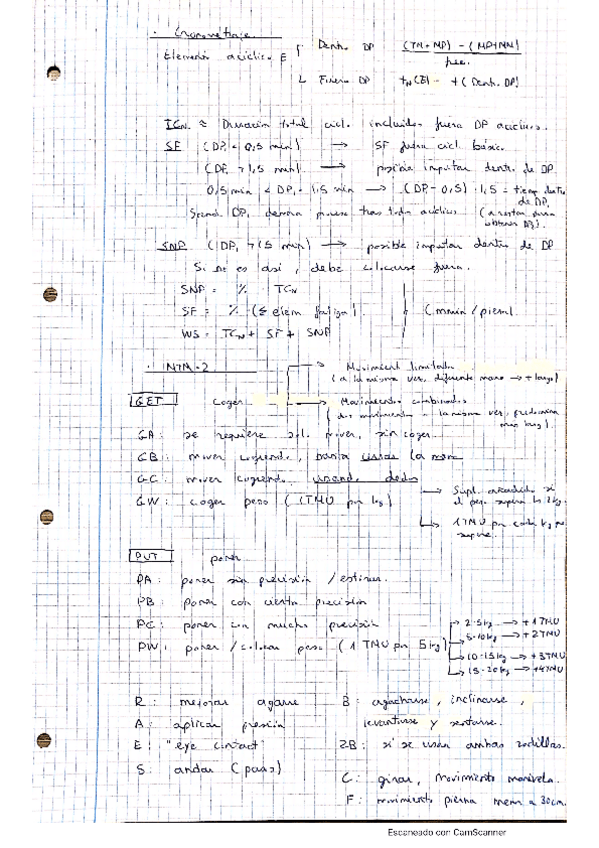 · Cronometraje.
Elementos acíclicos E { Dentro DP (TM+MP) - (MP+MM) / pie.
Fuera DP tN(E) - t (Dentro DP)
TCN ≈ Duración total ciclo incluidos fuera DP acíclicos.
SF (DP < 0,5 min) → SF fuera ciclo básico.
(DP > 1,5 min) → posible imputar dentro de DP.
0,5 min < DP < 1,5 min → (DP - 0,5) · 1,5 = tiempo dentro de DP.
DP,
SNP (DP > 15 min) → posible imputar dentro de DP
Si no es así, debe colocarse fuera.
SNP = % TCN
SF = % (Σ elem fatiga) (mmin/pieza)
WS = TCN + SF + SNP
· MTM-2
→ Movimiento limitado
(a la misma vez, diferente mano → + largo)
GET Coger → Movimientos combinados
(dos movimientos a la misma vez, predomina mas largo).
GA: se requiere solo mover, sin coger.
GB: mover cogiendo, basta cerrar la mano
GC: mover cogiendo usando dedos
GW: coger peso (1TMU por kg) → Supl. si el peso supera los 2kg.
→ 1TMU por cada kg que supere.
PUT poner
PA: poner sin precisión / estirar.
PB: poner con cierta precisión
PC: poner con mucha precisión
PW: poner / colocar peso (1 TMU por 5kg)
→ 2-5kg → +1TMU
→ 5-10kg → +2TMU
→ 10-15kg → +3TMU
→ 15-20kg → +4TMU
R: mejorar agarre
B: agacharse, inclinarse, levantarse y sentarse.
A: aplicar presión
E: "eye contact"
2B: si se usan ambas rodillas.
S: andar (pasos)
C: girar, movimiento manivela.
F: movimiento pierna menor a 30cm.
Escaneado con CamScanner